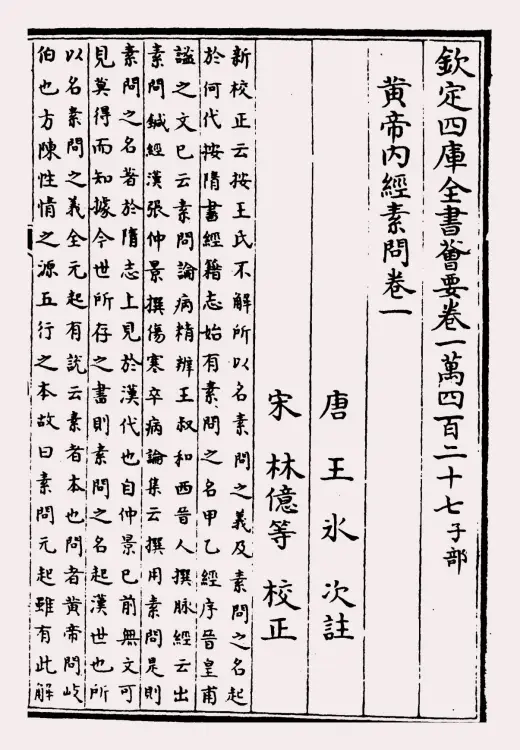 欽定四庫全書薈要卷一萬四百二十七子部
黃帝內經素問卷一
唐 王 氷 次註
宋 林億等 校正
新校正云按王氏不解所以名素問之義及素問之名起
於何代按隋書經籍志始有素問之名甲乙經序晉皇甫
謐之文已云素問論病精辨王叔和西晉人撰脈經云出
素問鍼經漢張仲景撰傷寒卒病論集云撰用素問是則
素問之名著於隋志上見於漢代也自仲景已前無文可
見莫得而知據今世所存之書則素問之名起漢世也所
以名素問之義全元起有說云素者本也問者黃帝問岐
伯也方陳性情之源五行之本故曰素問元起雖有此解